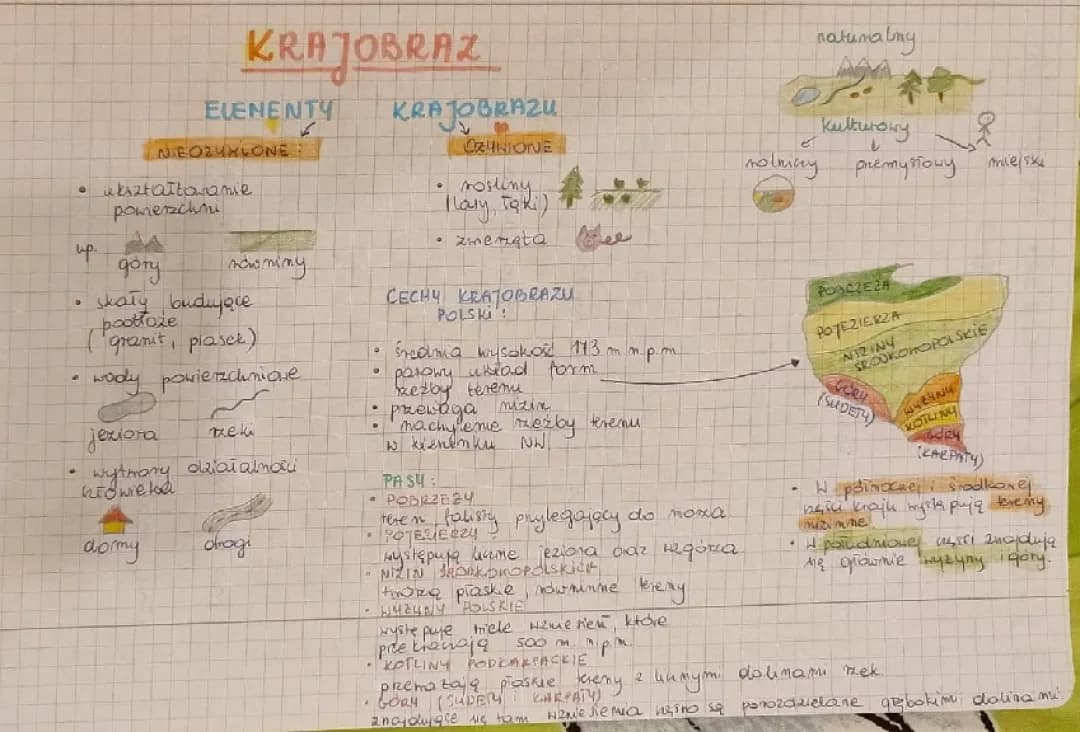 KRAJOBRAZ
ELEMENTY KRAJOBRAZU
NIEOŻYWIONE:
• ukształtowanie
powierzchni
np.
góry równiny
• skały budujące
podłoże
(granit, piasek)
• wody powierzchniowe
jeziora rzeki
• wytwory działalności
człowieka
domy drogi
OŻYWIONE
• rośliny
(lasy, łąki)
• zwierzęta
naturalny
kulturowy
rolniczy przemysłowy miejski
CECHY KRAJOBRAZU
POLSKI:
• średnia wysokość 173 m n.p.m.
• pasowy układ form
rzeźby terenu
• przewaga nizin
• nachylenie rzeźby terenu
w kierunku NW
POBRZEŻA
POJEZIERZA
NIZINY
ŚRODKOWOPOLSKIE
GÓRY
(SUDETY)
WYŻYNY
KOTLINY
GÓRY
(KARPATY)
• W północnej i środkowej
części kraju występują tereny
nizinne
• W południowej części znajdują
się głównie wyżyny i góry.
PASY:
• POBRZEŻY
teren falisty przylegający do morza
• POJEZIERZY
występują liczne jeziora oraz wzgórza
• NIZIN ŚRODKOWOPOLSKICH
tworzą płaskie, równinne tereny
• WYŻYNY POLSKIE
występuje wiele wzniesień, które
przekraczają 500 m. n.p.m.
• KOTLINY PODKARPACKIE
przeważają płaskie tereny z licznymi dolinami rzek.
• GÓRY (SUDETY i KARPATY)
znajdujące się tam wzniesienia często są porozdzielane głębokimi dolinami